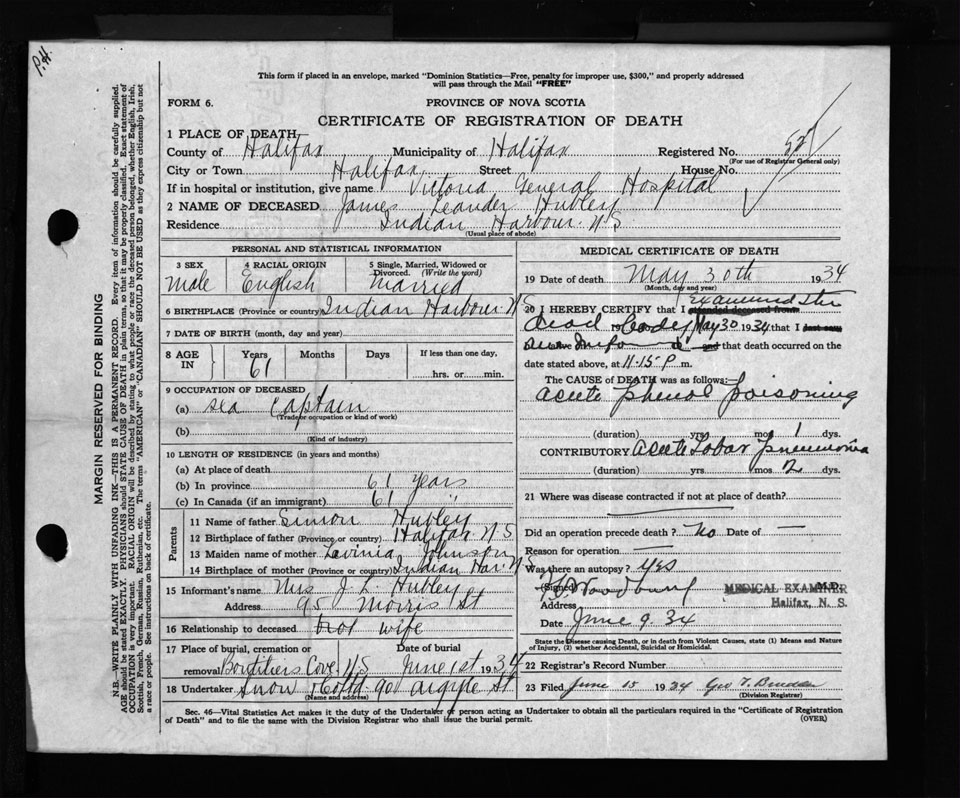 P.H.
This form if placed in an envelope, marked "Dominion Statistics—Free, penalty for improper use, $300," and properly addressed
will pass through the Mail "FREE"
FORM 6.
PROVINCE OF NOVA SCOTIA
CERTIFICATE OF REGISTRATION OF DEATH
1 PLACE OF DEATH
County of Halifax Municipality of Halifax Registered No.
(For use of Registrar General only)
City or Town Halifax Street House No.
If in hospital or institution, give name Victoria General Hospital
2 NAME OF DECEASED James Leander Hubley
Residence Indian Harbour N S
(Usual place of abode)
PERSONAL AND STATISTICAL INFORMATION
3 SEX Male
4 RACIAL ORIGIN English
5 Single, Married, Widowed or Divorced. (Write the word) Married
6 BIRTHPLACE (Province or country) Indian Harbour N S
7 DATE OF BIRTH (month, day and year)
8 AGE IN Years Months Days If less than one day,
61 hrs. or min.
9 OCCUPATION OF DECEASED
(a) Sea Captain
(Trade or occupation or kind of work)
(b)
(Kind of industry)
10 LENGTH OF RESIDENCE (in years and months)
(a) At place of death
(b) In province 61 years
(c) In Canada (if an immigrant) 61 "
Parents
11 Name of father Simon Hubley
12 Birthplace of father (Province or country) Halifax N S
13 Maiden name of mother Lavinia Johnson
14 Birthplace of mother (Province or country) Indian Har. N S
15 Informant's name Mrs J. L. Hubley
Address 95 Morris St
16 Relationship to deceased wife
17 Place of burial, cremation or Date of burial
removal Boutiliers Cove N S June 1st 1934
18 Undertaker Snow 90 Argyle St
(Name and address)
MEDICAL CERTIFICATE OF DEATH
19 Date of death May 30th 1934
(Month, day and year)
20 I HEREBY CERTIFY that I attended deceased from examined the
dead body May 30 1934 that I last saw
and that death occurred on the
date stated above, at 11.15 P m.
The CAUSE of DEATH was as follows:—
Acute phenol poisoning
(duration) yrs. mos. 1 dys.
CONTRIBUTORY Acute Lobar pneumonia
(duration) yrs. mos. 2 dys.
21 Where was disease contracted if not at place of death?
Did an operation precede death? No Date of —
Reason for operation —
Was there an autopsy? Yes
(Signed) Woodbury M.D.
MEDICAL EXAMINER
Address Halifax, N. S.
Date June 9. 34
State the Disease causing Death, or in death from Violent Causes, state (1) Means and Nature
of Injury, (2) whether Accidental, Suicidal or Homicidal.
22 Registrar's Record Number
23 Filed June 15 1934 Geo T.
(Division Registrar)
Sec. 46—Vital Statistics Act makes it the duty of the Undertaker or person acting as Undertaker to obtain all the particulars required in the "Certificate of Registration
of Death" and to file the same with the Division Registrar who shall issue the burial permit.
(OVER)
MARGIN RESERVED FOR BINDING
N.B.—WRITE PLAINLY WITH UNFADING INK—THIS IS A PERMANENT RECORD. Every item of information should be carefully supplied.
AGE should be stated EXACTLY. PHYSICIANS should STATE CAUSE OF DEATH in plain terms, so that it may be properly classified. Exact statement of
OCCUPATION is very important. RACIAL ORIGIN will be described by stating to what people or race the deceased person belonged, whether English, Irish,
Scottish, French, German, Russian, Ruthenian, etc. The terms "AMERICAN" or "CANADIAN" SHOULD NOT BE USED as they express citizenship but not
a race or people. See instructions on back of certificate.